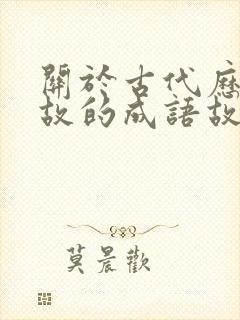 關於古代歷
故的成語故
莫晨歡